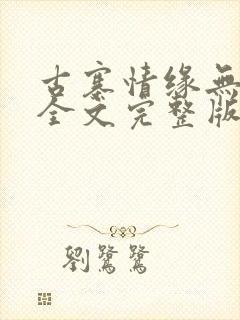 古寨情缘無
全文完整版
劉鷺鷺